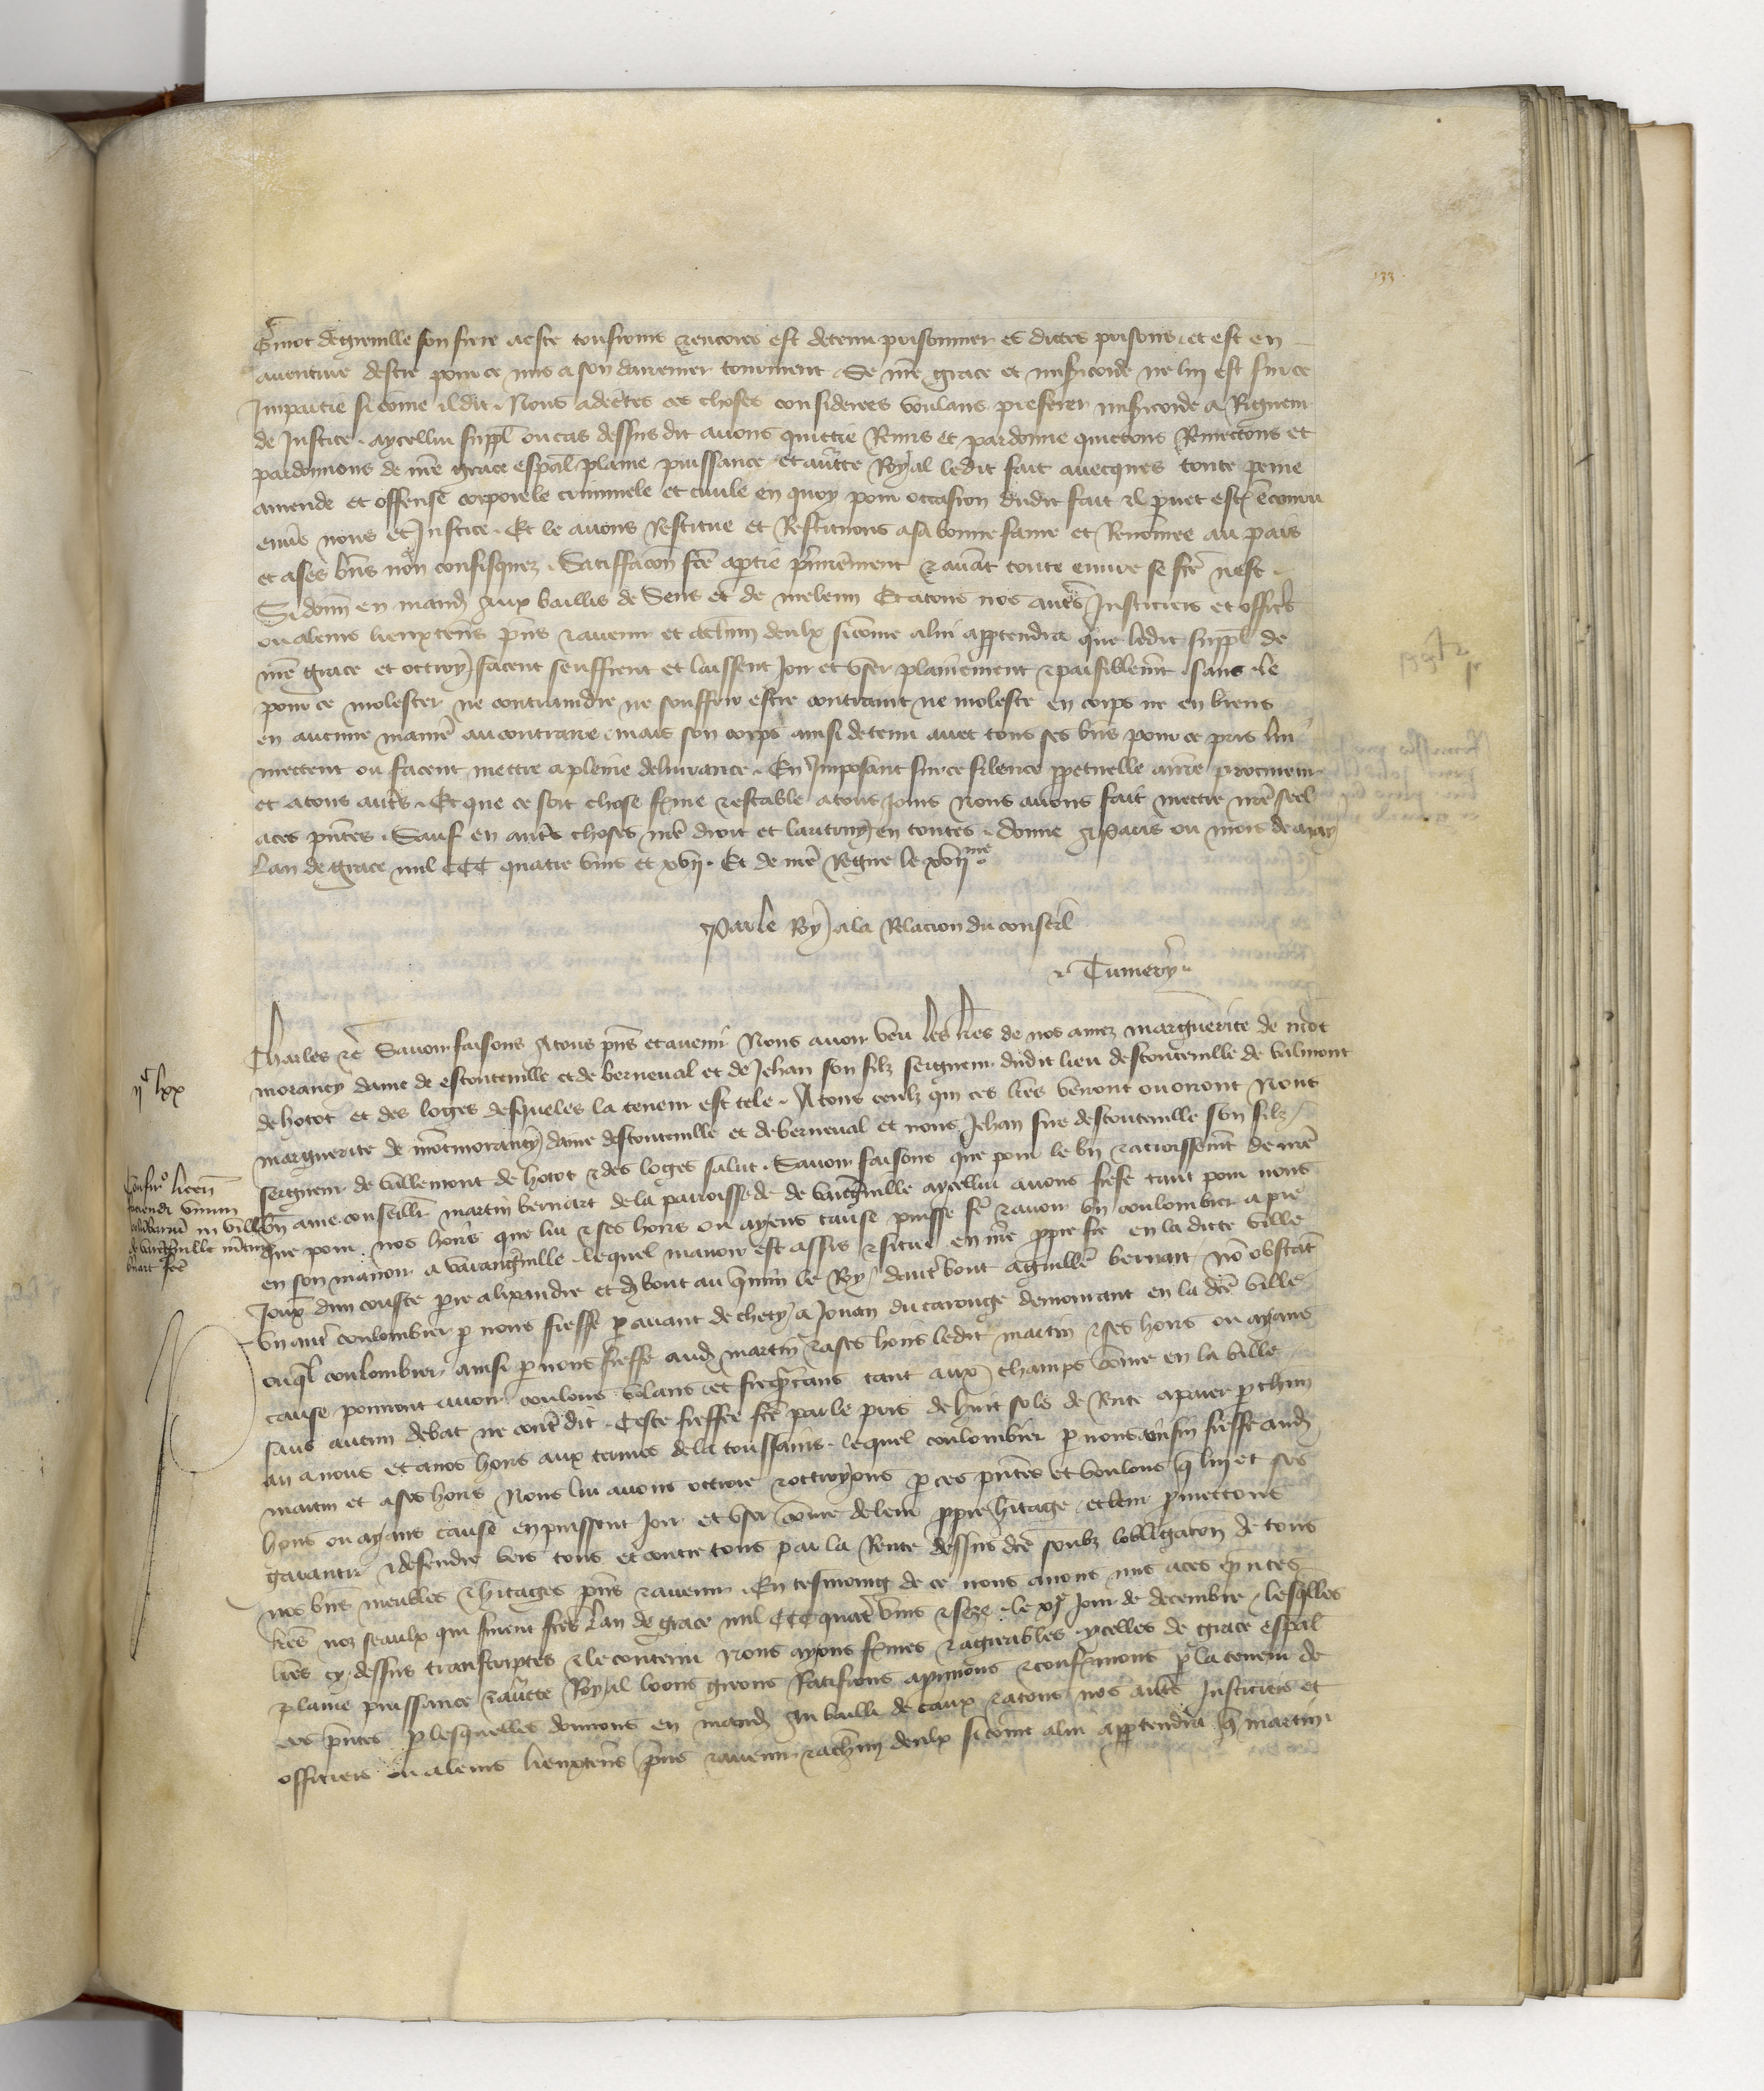 133
Guiot degreville son frere a este tousjours et encores est detenu prisonnier es dictes prisons et est en
aventure destre pour ce mis a son derrenier tourment se nre grace et misericorde ne lui est sur ce
Impartie si come il dit Nous adectes ces choses considerees voulans preferer misericorde a Rigueur
de Justice aycellui suppl ou cas dessus dit avons quictie Remis et pardonne quictons Remectons et
pardonnons de nre grace espal plaine puissance et auctte Royal ledit fait avecques toute peine
amende et offense corporele criminele et civile en quoy pour occasion dudit fait il puet estre encouru
envs nous et Justice Et le avons Restitue et Restituons a sa bonne fame et Renomee au pais
et a ses bns non confisquez Satiffacon fte a ptie premierement et avant toute euvre se fte nest
Si donn en mand aux baillis de Sens et de meleun Et a tous nos autrs Justiciers et officrs
ou a leurs lieuxtens pns et avenir et a chun deulx si come a lui apptendra que ledit suppl de
nre grace et ottroy facent seuffrent et laissent Joir et user plainement et paisiblemt sans le
pour ce molester ne contraindre ne souffrir estre contraint ne moleste en corps ne en biens
en aucune maniere au contraire mais son corps ainsi detenu avec tous ses bns pour ce pris lui
mectent ou facent mettre a pleine delivrance En Imposant sur ce silence ppetuelle a nre procureur
et a tous autrs Et que ce soit chose ferme et estable a tous jours Nous avons fait mettre nre seel
a ces pntes Sauf en autrs choses nre droit et lautruy en toutes donne a Paris ou mois de may
Lan de grace mil CCC quatre vins et xvij Et de nre Regne le xvijme
Par le Roy a la Relacion du conseil
Tumery
Charles etc Savoir faisons A tous pns et avenir Nous avoir veu les lres de nos amez marguerite de mot
morancy dame de estouteville et de berneval et de Jehan son filz seigneur dudit lieu destouteville de valmont
de hotot et des loges desqueles la teneur est tele A tous ceulz qui ces lres verront ou orront Nous
marguerite de motmorancy dame destouteville et de berneval et nous Jehan sire destouteville son filz
seigneur de vallemont de hotot et des loges salut Savoir faisons que pour le bn et acroissemt de nre
bn ame conseillr martin bernart de la parroisse de de aycellui avons fiefe tant pour nous
que pour nos hoirs que lui et ses hoirs ou ayens cause puisse fre et avoir un coulombier a pie
en son manoir a lequel manoir est assis et situe en nre ppre fie en la dicte ville
Joux dun couste pre alixandre et dun bout au chemin le Roy dautre bout a guillme bernart no obstat
un autre coulombier p nous fieffe p avant de chety a Jouan ducarouge demourant en la dce ville
ouquel coulombier ainsi p nous fieffe aud martin et a ses hoirs ledit martin et ses hoirs ou ayans
cause pourront avoir coulons volans et frequentans tant aux champs come en la ville
sans aucun debat ne contredit Ceste fieffee fte par le pris de huit sols de Rente a paier p chun
an a nous et a nos hoirs aux termes de la toussains lequel coulombier p nous ainsin fieffe aud
martin et a ses hoirs Nous lui avons ottroie et ottroyons p ces pntes et voulons que lui et ses
hoirs ou ayans cause en puissent Joir et user come de leur ppre heritage et leur pmettons
garantir et defendre vers tous et contre tous par la Rente dessus dce soubz lobligacon de tous
nos bns meubles et heritages pns et avenir En tesmoing de ce nous avons mis a ces pntes
lres noz seaulx qui furent ftes Lan de grace mil CCC quatre vins et seze le xje Jour de decembre Lesqlles
lres cy dessus transcriptes et le contenu Nous ayons fermes et agreables ycelles de grace espal
plaine puissance et auctte Royal loons greons Ratifions apvuons et confermons p la teneur de
ces pntes p lesquelles donnons en mand au bailli de caux et a tous nos autrs Justiciers et
officiers ou a leurs lieuxtens pns et avenir et a chun deulx si come a lui apptendra que martin
ijc lxx